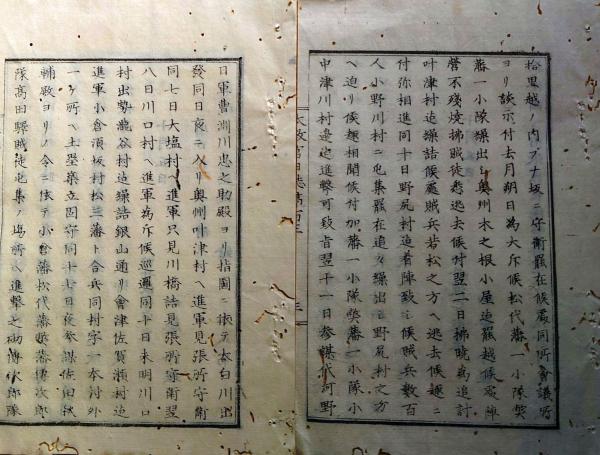 拾里越ノ内ブナ坂ニ守衛罷在候處同所會議所
ヨリ談示付去月朔日為大斥候松代藩一小隊弊
藩一小隊繰出シ奥州木之根小屋迠罷越候處陣
營不殘焼拂賊徒悉迯去候付翌二日拂曉為追討
叶津村迠繰詰候處賊兵若松之方ヘ迯去候趣ニ
付弥相進同十日野尻村迠着陣致シ候賊兵數百
人小野川村ニ屯集罷在追々繰出シ野尻村之方
ヘ迫リ候趣相聞候付加藩一小隊弊藩一小隊小
中津川村邊迠進撃可致旨翌十一日参謀代河野
日軍曹淵川忠之助殿ヨリ指図ニ依テ太白川出
發同日夜ニ入リ奥州叶津村ヘ進軍見張所守衛
同七日大塩村ヘ進軍只見川橋詰見張所守衛翌
八日川口村ヘ進軍為斥候巡邏同十日未明川口
村出勢龍谷村迠繰詰銀山通リ會津佐賀瀬村迠
進軍小倉須坂村松三藩ト合兵同村字一本杦外
一ケ所ヘ土壘築立固守同十七日夜参謀佐田秋
輔殿ヨリノ令ニ依テ小倉藩松代藩弊藩傳次郎
隊高田驛賊徒屯集ノ場所ヘ進撃之砌傳次郎隊